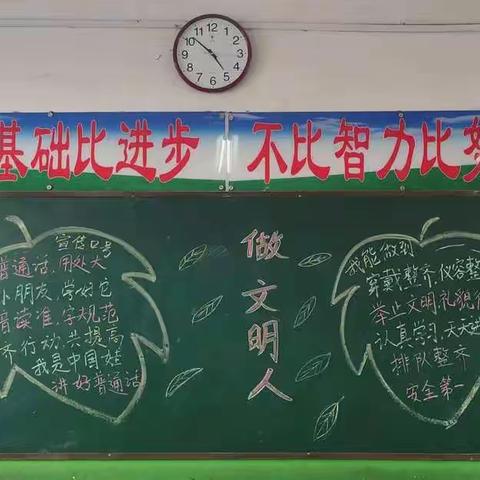 基础比进步 不比智力比努
做文明人
宣传口号
普通话,用处大
小朋友,学好它
普读准,字规范
齐行动,共提高
我是中国娃
讲好普通话
我能做到
穿戴整齐,仪容整
举止文明,礼貌
认真学习,天天
排队整齐
安全第一
12
1
2
3
4
5
6
7
8
9
10
11